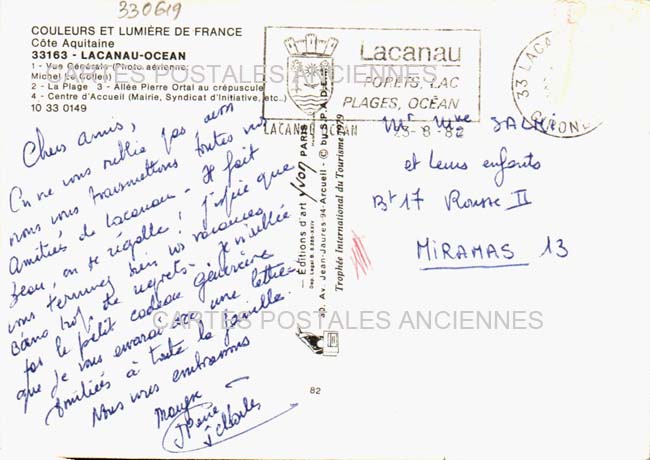 330619
COULEURS ET LUMIÈRE DE FRANCE
Côte Aquitaine
33163 - LACANAU-OCEAN
1 - Vue Générale (Photo aérienne:
Michel Le Collen)
2 - La Plage 3 - Allée Pierre Ortal au crépuscule
4 - Centre d'Accueil (Mairie, Syndicat d'Initiative, etc..)
10 33 0149
CARTES POSTALES ANCIENNES
Lacanau
FORETS, LAC
PLAGES, OCÉAN
LACANAU OCEAN
23-8-82
33 LACA
GIRONDE
Chers amis,
On ne vous oublie pas
nous vous transmettons toutes nos
Amitiés de Lacanau. Il fait
beau, on se régale! j'espère que
vous terminez bien vos vacances
sans trop de regrets. Je n'oublie
pas le petit cadeau Geneviève
que je vous enverrai avec une lettre
Amitiés à toute la famille.
Nous vous embrassons
Pierre
Charles
Mr Mme
et leurs enfants
Bt 17 Rousse II
MIRAMAS 13
Editions d'art Yvon PARIS
40, Av. Jean-Jaurès 94-Arcueil - © by S.P.A.D.E.M.
Trophée International du Tourisme 1979
CARTES POSTALES ANCIENNES
82